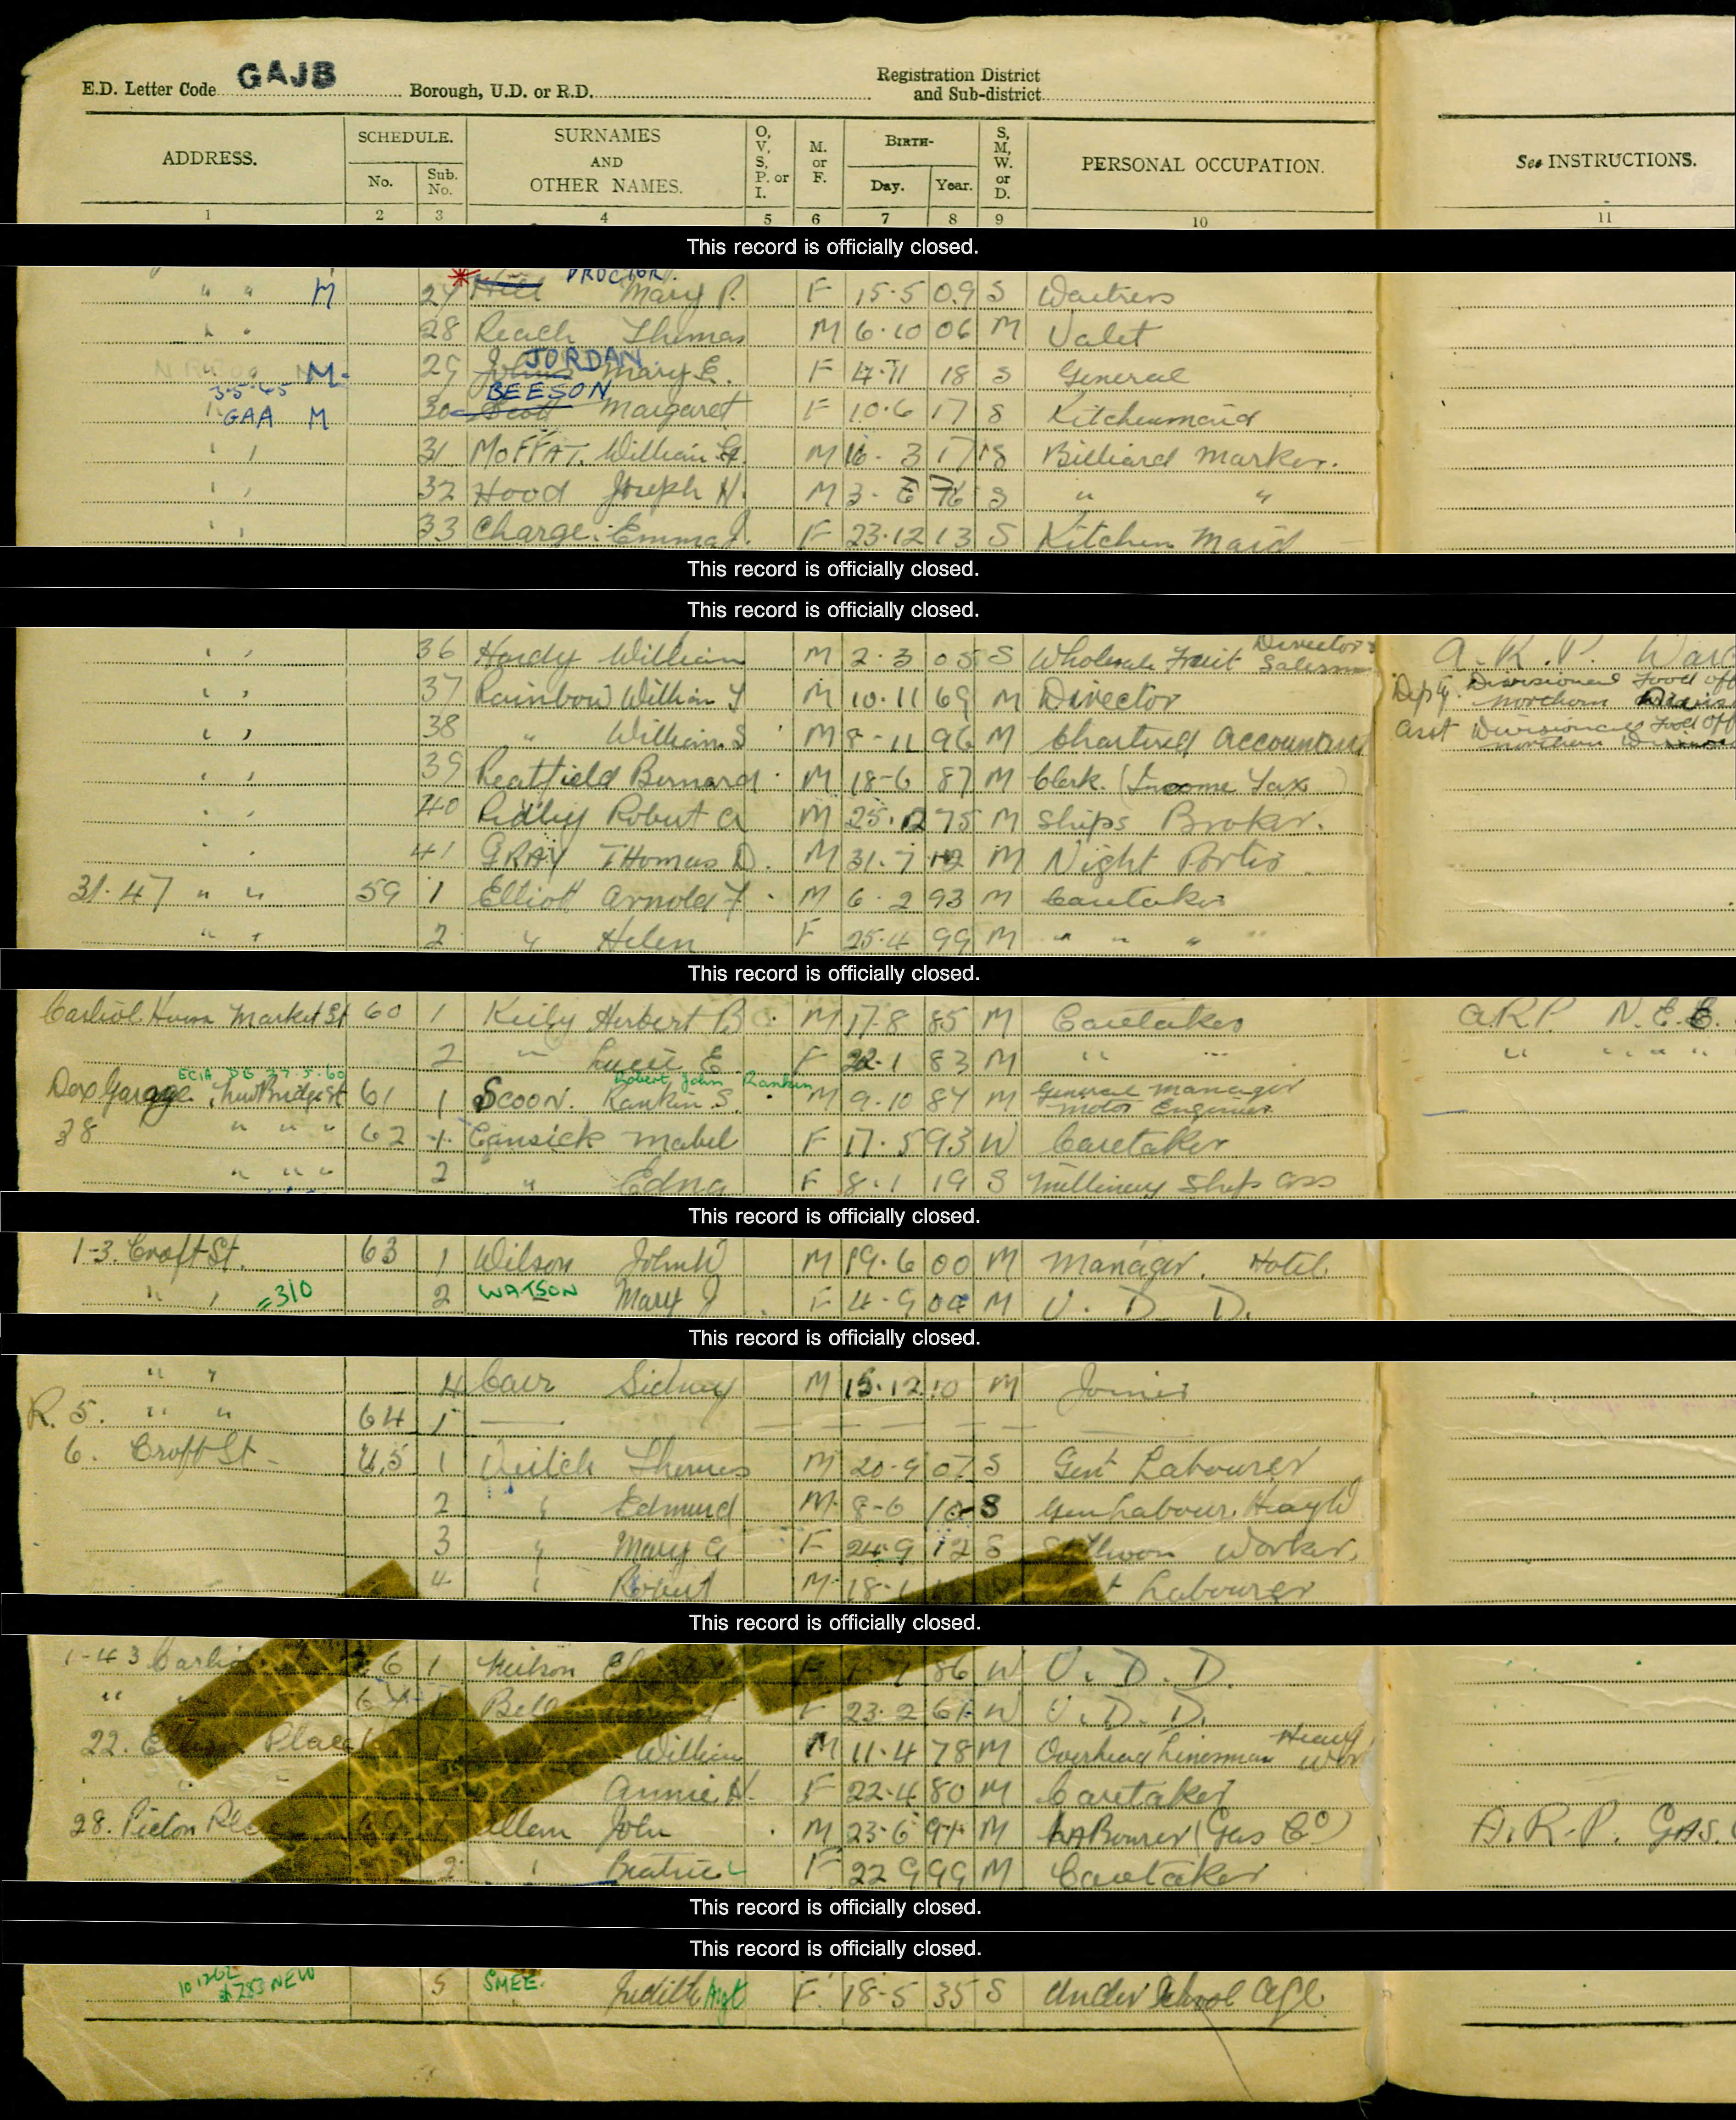 E.D. Letter Code GAJB Borough, U.D. or R.D. Registration District and Sub-district
ADDRESS. SCHEDULE. No. Sub. No. SURNAMES AND OTHER NAMES. O, V, S, P. or I. M. or F. BIRTH- Day. Year. S, M, W. or D. PERSONAL OCCUPATION. See INSTRUCTIONS.
1 2 3 4 5 6 7 8 9 10 11
This record is officially closed.
PROCTOR.
" " M 27 Hill Mary P. F 15.5 09 S Waitress
" " 28 Reach Thomas M 6.10 06 M Valet
JORDAN
M- 29 Mary E. F 4.11 18 S General
3.5.45 BEESON
GAA M 30 Scott Margaret F 10.6 17 S Kitchenmaid
" " 31 MOFFAT. William M 16.3 17 S Billiard Marker.
" " 32 Hood Joseph H. M 3. 76 S " "
" " 33 Charge. Emma J. F 23.12 13 S Kitchen Maid
This record is officially closed.
This record is officially closed.
" " 36 Hardy William M 2.3 05 S Wholesale Fruit Salesman Director A.R.P.
" " 37 Rainbow William M 10.11 69 M Director Depty. Divisional Food Northern
" " 38 " William S M 8-11 96 M Chartered Accountant Asst Divisional Food Off Northern
" " 39 Bernard M 18-6 87 M Clerk. (Income Tax)
" " 40 Ridley Robert A M 25.12 75 M Ships Broker.
" " 41 GRAY THomas D. M 31.7 M Night Porter
31.47 " " 59 1 Elliott Arnold M 6.2 93 M Caretaker
" " 2 " Helen F 25.4 99 M " " " "
This record is officially closed.
Carliol House Market St 60 1 Herbert B M 17.8 85 M Caretaker A.R.P. N.E.E.
2 " E F 22.1 83 M " " " " " "
Robert John Rankin
Dex Garage. New Bridge St 61 1 SCOON. Rankin S. M 9.10 84 M General Manager Motor Engineer
38 " " " 62 1 Mabel F 17.5 93 W Caretaker
" " " 2 " Edna F 8.1 19 S Millinery Shop Ass
This record is officially closed.
1-3. Croft St. 63 1 Wilson John W M 19.6 00 M Manager. Hotel.
" " =310 2 WATSON Mary J F 4.9 04 M U. D. D.
This record is officially closed.
" " 4 Carr Sidney M 15.12 10 M Joiner
R. 5. " " 64 1
6. Croft St 65 1 Veitch Thomas M 20.9 07 S Gen Labourer
2 " Edmund M 8-6 S Gen Labour. Heavy W
3 " Mary A F 24.9 12 S Worker.
4 " Robert M 18.1 Labourer
This record is officially closed.
1-43 6 1 Neilson 86 W U. D. D.
" " Bell F 23.2 61 W U. D. D.
22. Place William M 11.4 78 M Overhead Linesman Heavy Wor
Annie H. F 22.4 80 M Caretaker
28. Picton John M 23.6 M LABourer (Gas Co) A.R.P. GAS.
2 " Beatrice F 22 9 99 M Caretaker
This record is officially closed.
This record is officially closed.
NEW 5 SMEE. Judith F. 18-5 35 S Under School Age.